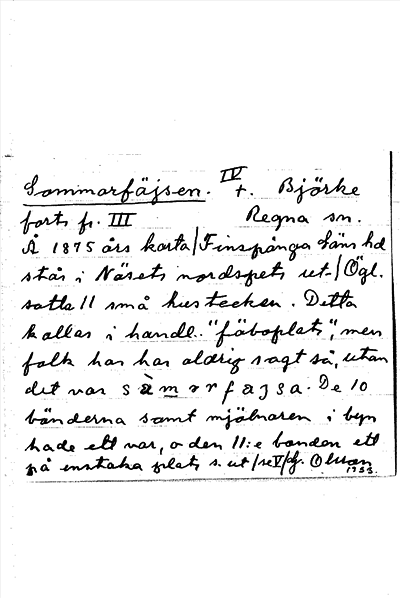 Sommarfäjsen. IV t. Björke
forts fr. III Regna sn.
Å 1875 års karta/Finspånga Läns hd
står i Näsets nordspets ut-/Ögl.
satta 11 små hustecken. Detta
kallas i handl. "fäboplats", men
folk har har aldrig sagt så, utan
det var sàmarfajsa. De 10
bönderna samt mjölnaren i byn
hade ett var, o den 11:e bonden ett
på enstaka plats s. ut/se V/ Olsson
1933.